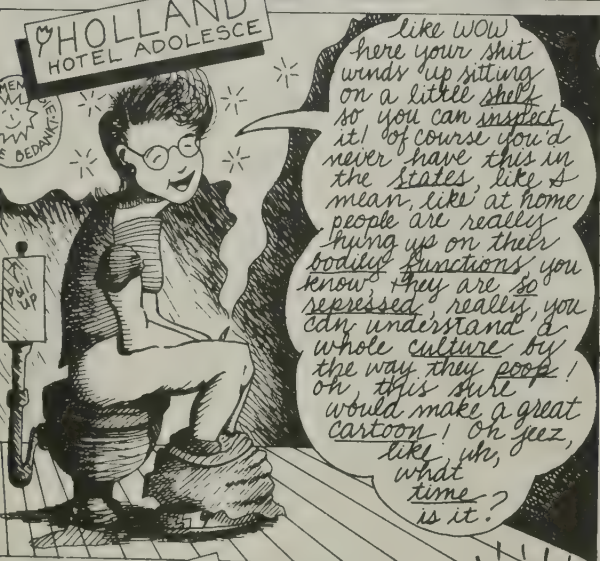 HOLLAND
HOTEL ADOLESCE
BEDANKT
Pull
UP
like WOW
here your shit
winds up sitting
on a little shelf
so you can inspect
it! of course you'd
never have this in
the States, like I
mean, like at home
people are really
hung up on their
bodily functions, you
know, they are so
repressed, really, you
can understand a
whole culture by
the way they poop!
oh, this sure
would make a great
cartoon! Oh jeez,
like, uh,
what
time
is it?